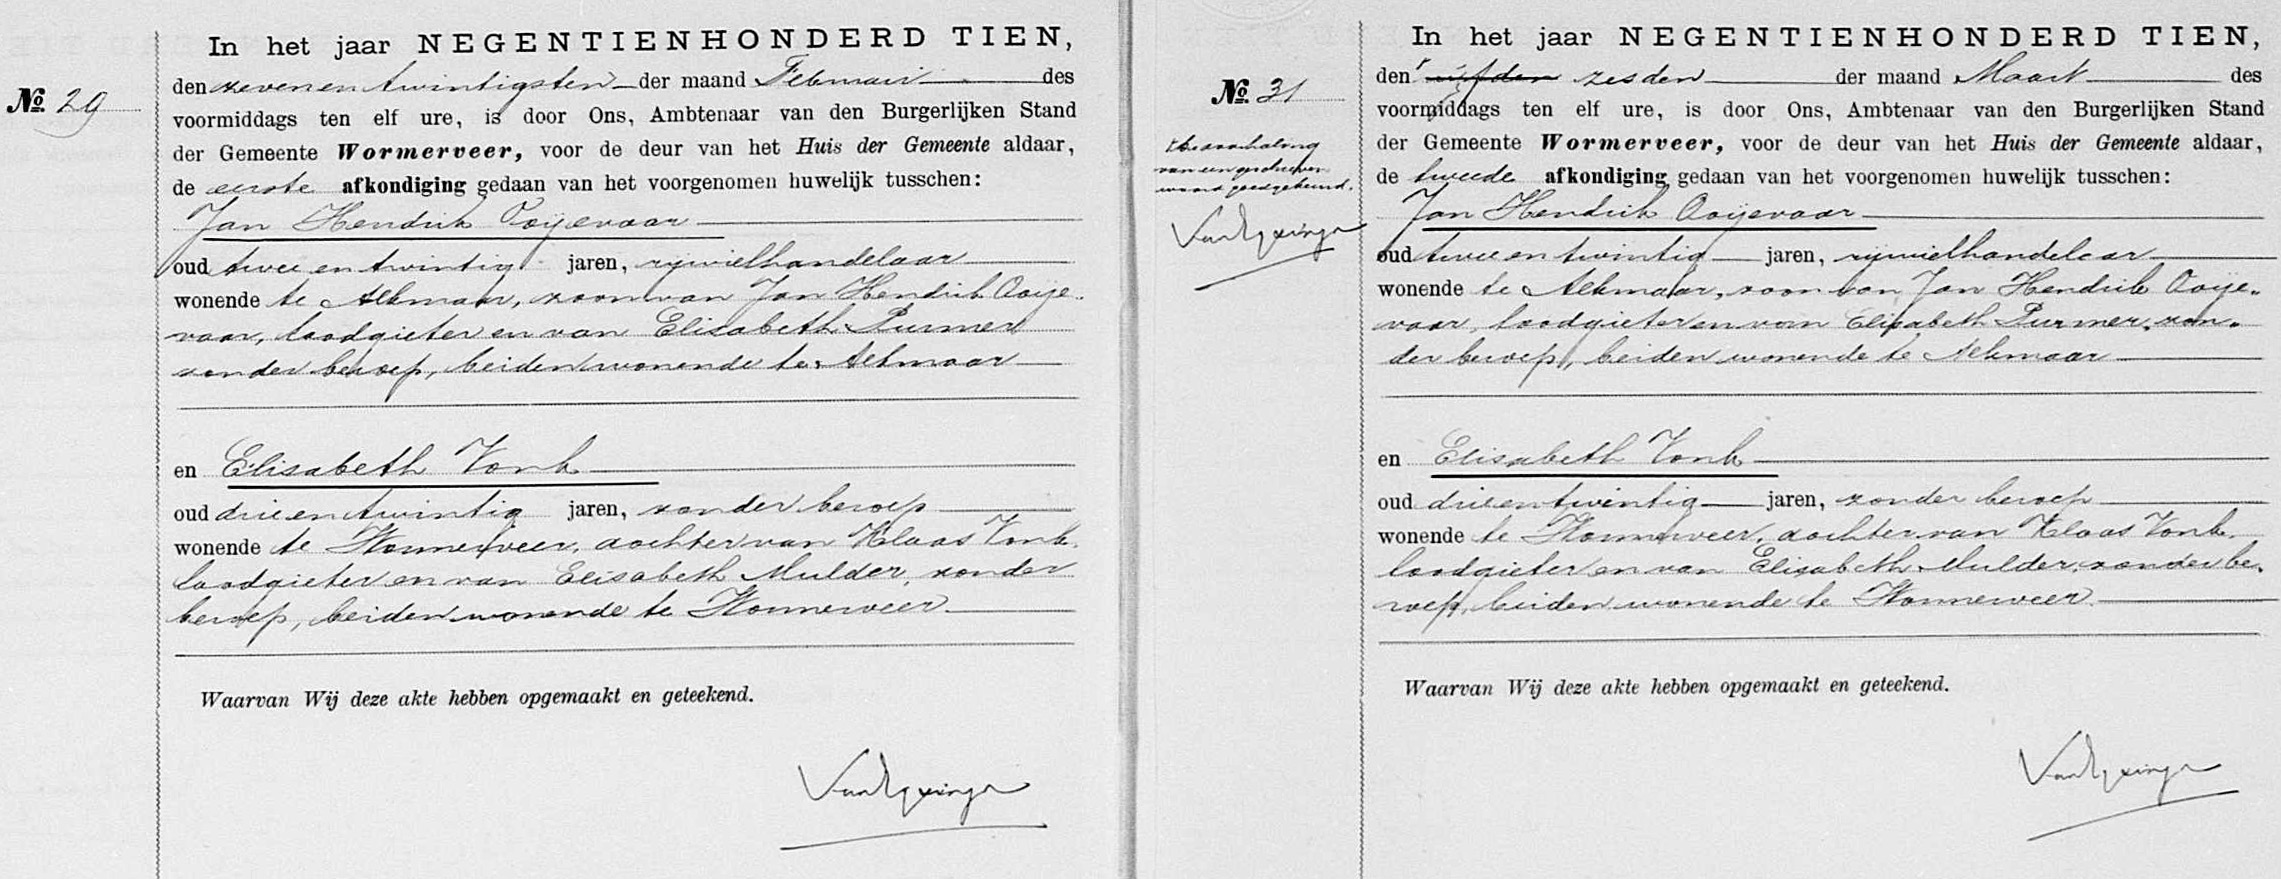 № 29
In het jaar NEGENTIENHONDERD TIEN,
den zevenentwintigsten der maand Februari des
voormiddags ten elf ure, is door Ons, Ambtenaar van den Burgerlijken Stand
der Gemeente Wormerveer, voor de deur van het Huis der Gemeente aldaar,
de eerste afkondiging gedaan van het voorgenomen huwelijk tusschen:
Jan Hendrik Ooijevaar
oud twee en twintig jaren, rijwielhandelaar
wonende te Alkmaar, zoon van Jan Hendrik Ooije-
vaar, loodgieter en van Elisabeth Purmer
zonder beroep, beiden wonende te Alkmaar
en Elisabeth Vonk
oud drie en twintig jaren, zonder beroep
wonende te Wormerveer, dochter van Klaas Vonk,
loodgieter en van Elisabeth Mulder, zonder
beroep, beiden wonende te Wormerveer
Waarvan Wij deze akte hebben opgemaakt en geteekend.
№ 31
de doorhaling
van een geschreven
woord goedgekeurd.
In het jaar NEGENTIENHONDERD TIEN,
den vijfden zesden der maand Maart des
voormiddags ten elf ure, is door Ons, Ambtenaar van den Burgerlijken Stand
der Gemeente Wormerveer, voor de deur van het Huis der Gemeente aldaar,
de tweede afkondiging gedaan van het voorgenomen huwelijk tusschen:
Jan Hendrik Ooijevaar
oud twee en twintig jaren, rijwielhandelaar
wonende te Alkmaar, zoon van Jan Hendrik Ooije-
vaar, loodgieter en van Elisabeth Purmer, zon-
der beroep, beiden wonende te Alkmaar
en Elisabeth Vonk
oud drie en twintig jaren, zonder beroep
wonende te Wormerveer, dochter van Klaas Vonk,
loodgieter en van Elisabeth Mulder, zonder be-
roep, beiden wonende te Wormerveer
Waarvan Wij deze akte hebben opgemaakt en geteekend.